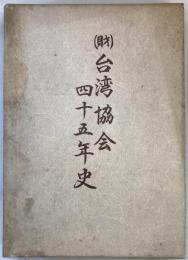 ㈶台湾協会
四十五年史